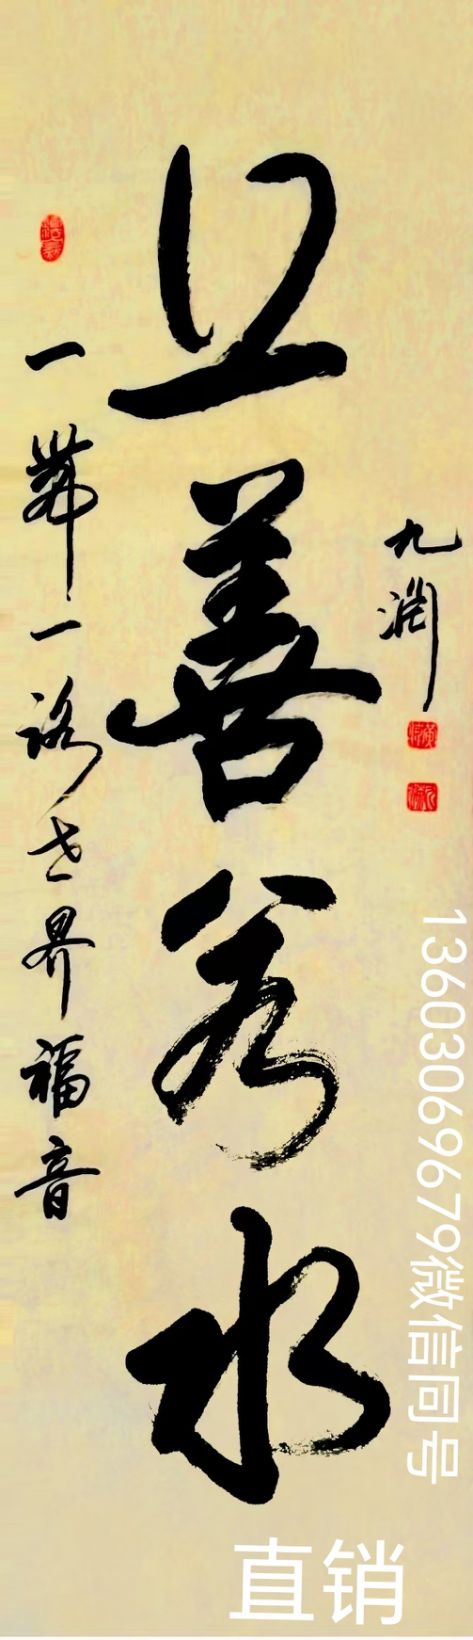 上善若水
九渊
一帶一路世界福音
13603069679微信同号
直销